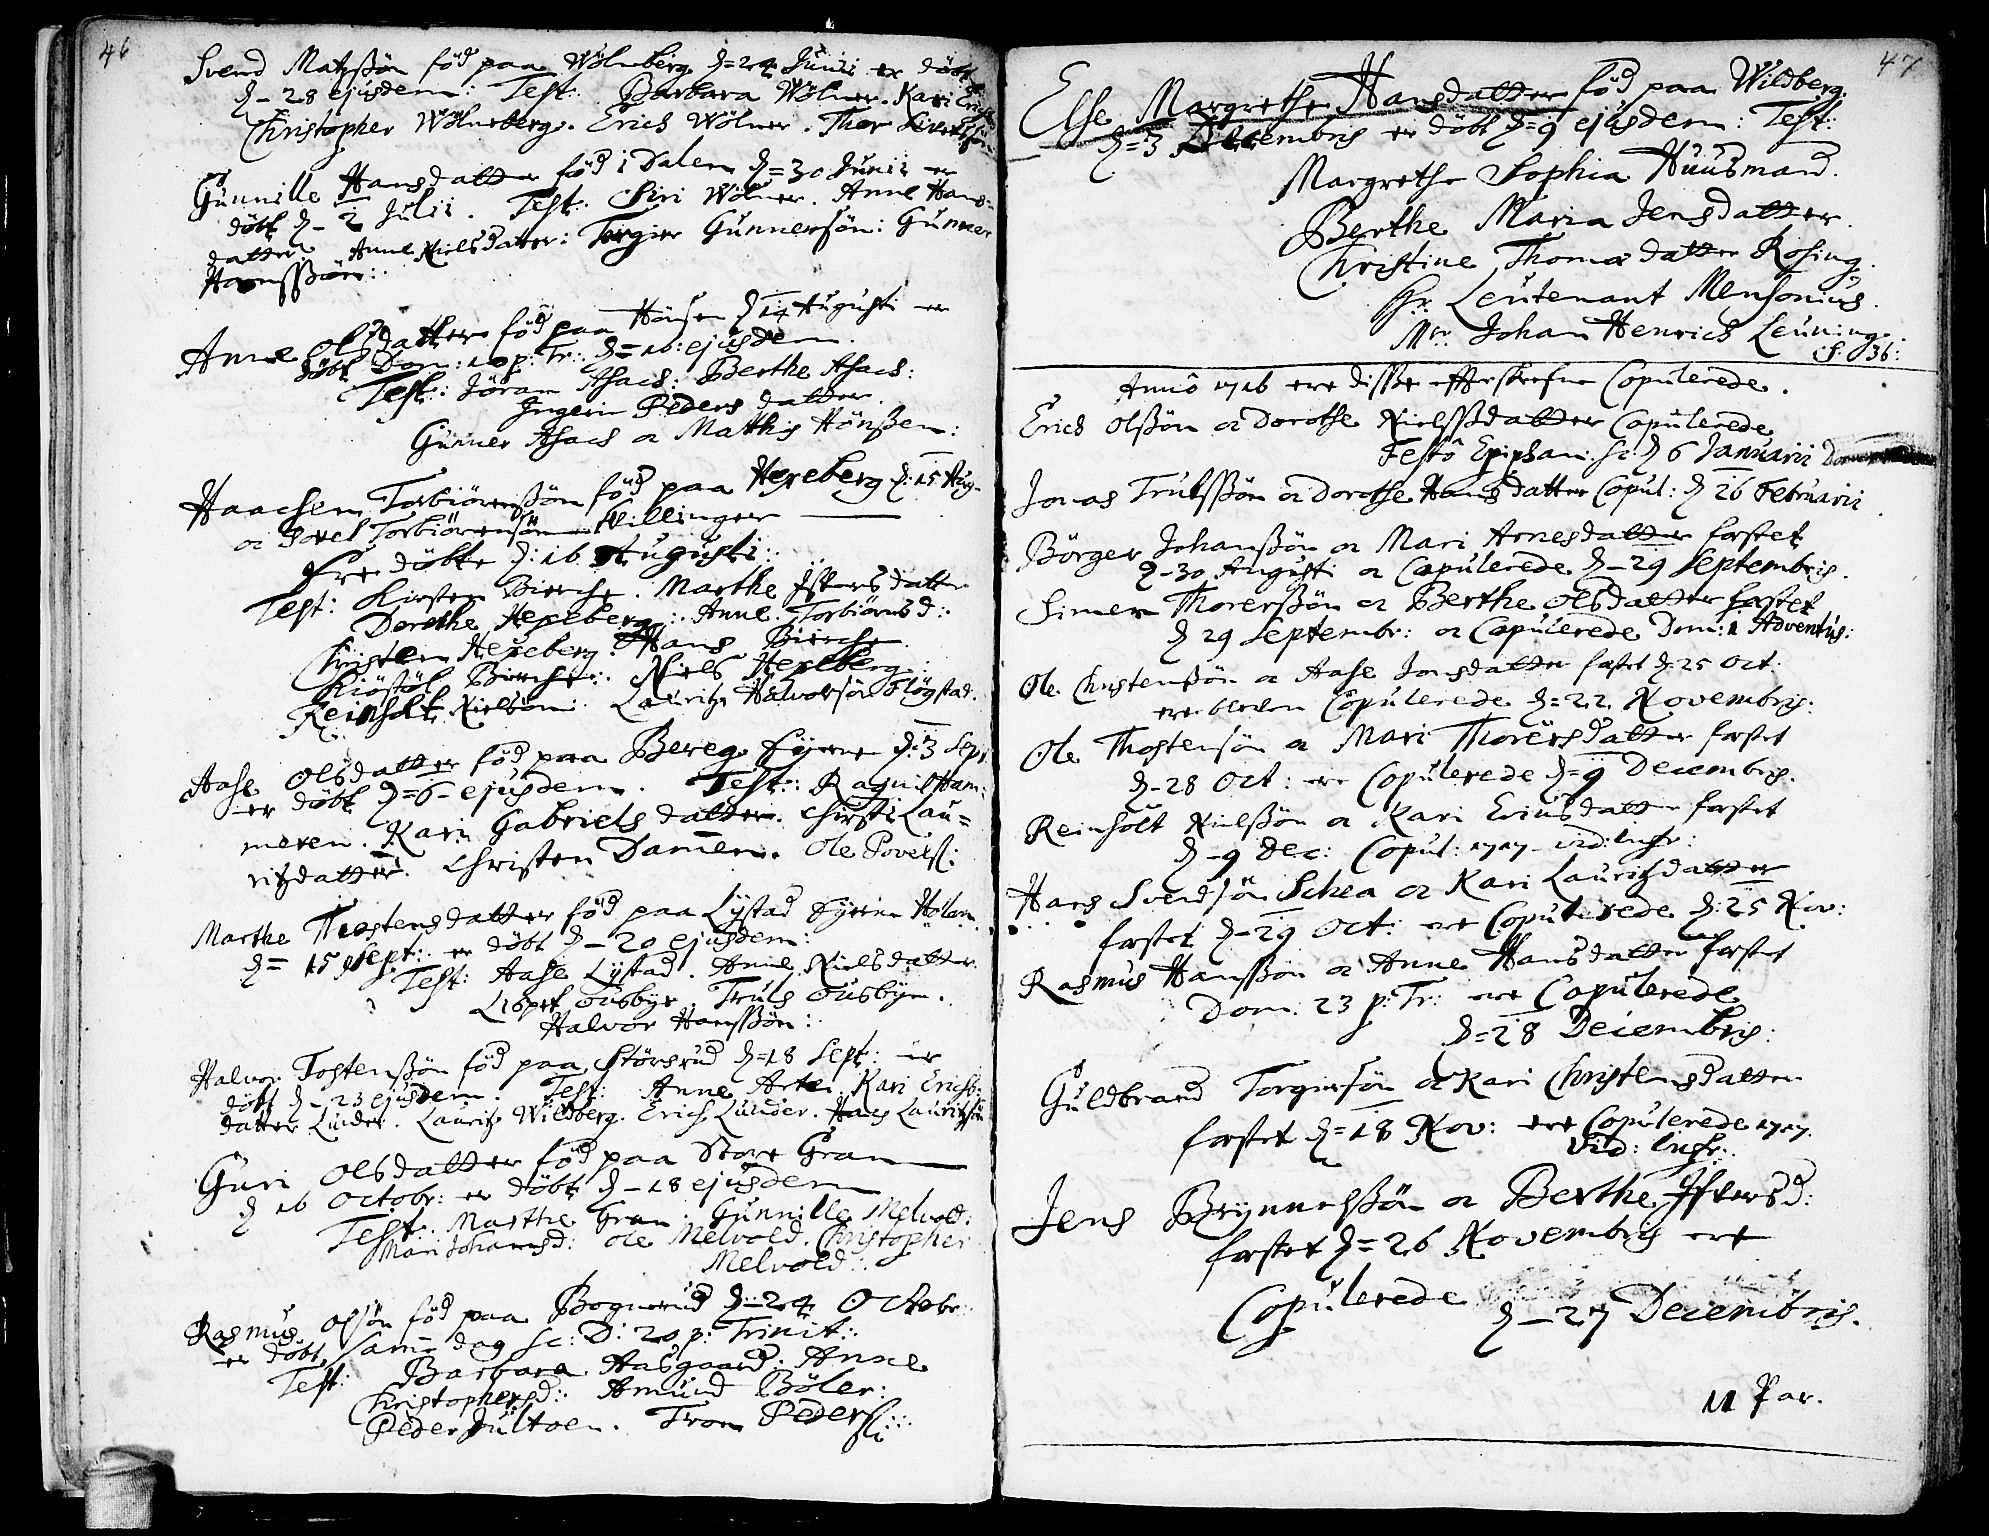 46
Svend Matzßön föd paa Wölneberg d=24 Junii er döbt
d-28 ejusdem: Test: Barbara Wölner. Kari Erichs
Christopher Wölneberg. Erich Wölner. Thor Siversön.
Gunnille Hansdatter föd i Dalen d=30 Junii er
döbt d- 2 Julii. Test. Siri Wölner. Anne Hans=
datter. Anne Nielsdatter: Torgier Gunnersön: Gunner
Hansßön:
Anne Olsdatter föd paa Hönsen d 14 Augusti er
döbt Dom: 10 p: Tr: d=16: ejusdem.
Test: Jöran Asach: Berthe Asach:
Ingerin Peders datter.
Gunner Asach oc Mathis Hönßen:
Haachen Torbiörnßön föd paa Hexeberg d: 15 Aug.
oc Povel Torbiörensön tvillinger
Ere döbte d: 16 Augusti:
Test: Kirsten Bierche. Marthe Iffversdatter
Dorethe Hexeberg: Anne Torbiörnsd:
Christen Hexeberg. Hans Bierche
Kiöstöl Bierche: Niels Hexeberg.
Reinholt Nielsön: Lauritz Halvorsön Flögstad.
Aase Olsdatter föd paa Bereg Eyerne d: 3 Sept
er döbt d=6- ejusdem. Test: Ragnil Ham:
meren. Kari Gabriels datter. Chirsti Lau=
ritzdatter. Christen Damen. Ole Povelß:
Marthe Thostensdatter föd paa Lystad Eyerne Holen
d= 15 Sept: er döbt d-20 ejusdem:
Test: Aase Lystad. Anne Nielsdatter.
Lisbet Ousbye. Truls Ousbye.
Halvor Hansßön:
Halvor Tostenßön föd paa Störsrud d=18 Sept: er
döbt d-23 ejusdem. Test: Anne Kari Erichs:
datter Lunder. Lauritz Wildberg. Erich Lunder. Hans Lauritzsön
Guri Olsdatter föd paa Store Gran
d 16 Octobr: er döbt d-18 ejusdem
Test: Marthe Gran. Gunnille Melvold:
Mari Johansd: Ole Melvold. Christopher
Melvold:
Rasmus Olsön föd paa Bognerud d-24 Octobr:
er döbt samme dag sc: D: 20 p: Trinit:
Test: Barbara Aasgaard. Anne
Christophersd: Amund Böler:
Peder Jultoen. Tron Pederß:
47
Else Margrethe Hansdatter föd paa Wildberg
d=3 Decembris er döbt d=9 ejusdem: Test:
Margrethe Sophia Huusmand.
Berthe Maria Jensdatter.
Christine Thomædatter Rosing.
Hr. Leutenant Mensonius.
Mr. Johan Henrich Leuning.
S. 36:
Anno 1716 ere disse effterskrefne Copulerede.
Erich Olsßön oc Dorothe Nielsßdatter Copulerede
Festo Epiphan: sc: d 6 Januarii
Jonas Trulsßön oc Dorothe Hansdatter Copul: d 26 Februarii
Börger Johanßön oc Mari Arnesdatter festet
d-30 Augusti oc Copulerede d-29 Septembris.
Simen Thorerßön oc Berthe Olsdatter festet
d 29 Septembr: oc Copulerede Dom: 1 Adventus:
Ole Christenßön oc Aase Jonsdatter festet d 25 Oct:
ere bleven Copulerede d=22 Novembris:
Ole Thostensön oc Mari Thorersdatter festet
d-28 Oct: ere Copulerede d=9 Decembris.
Reinholt Nielßön oc Kari Eriensdatter festet
d-9 Dec: Copul: 1717 vid: infr:
Hans Svendsön Schea oc Kari Lauritzdatter
festet d-29 Oct: ere Copulerede d: 25 Nov:
Rasmus Hansßön oc Anne Hansdatter festet
Dom: 23 p: Tr: ere Copulerede
d=28 Decembris:
Guldbrand Torgiersön oc Kari Christensdatter
festet d=18 Nov: ere Copulerede 1717.
vid: infr:
Jens Brynnelsßön oc Berthe Iffversd:
festet d=26 Novembris ere
Copulerede d-27 Decembris.
11 Par.